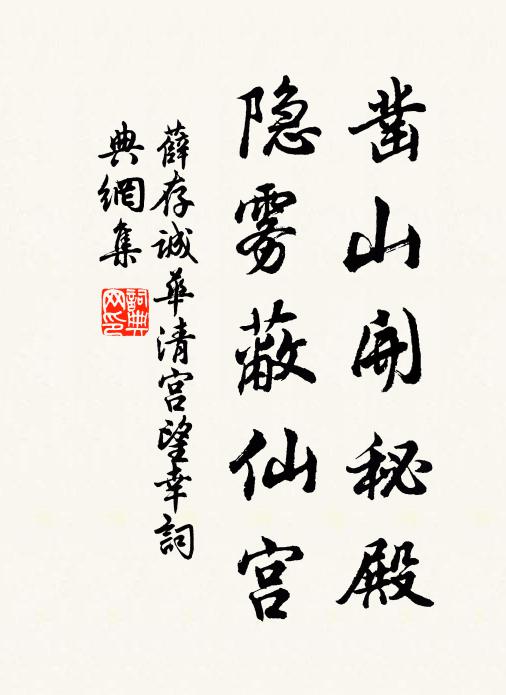 凿山开秘殿
隐雾蔽仙宫
薛存诚华清宫望幸词
典網集
詞典網印